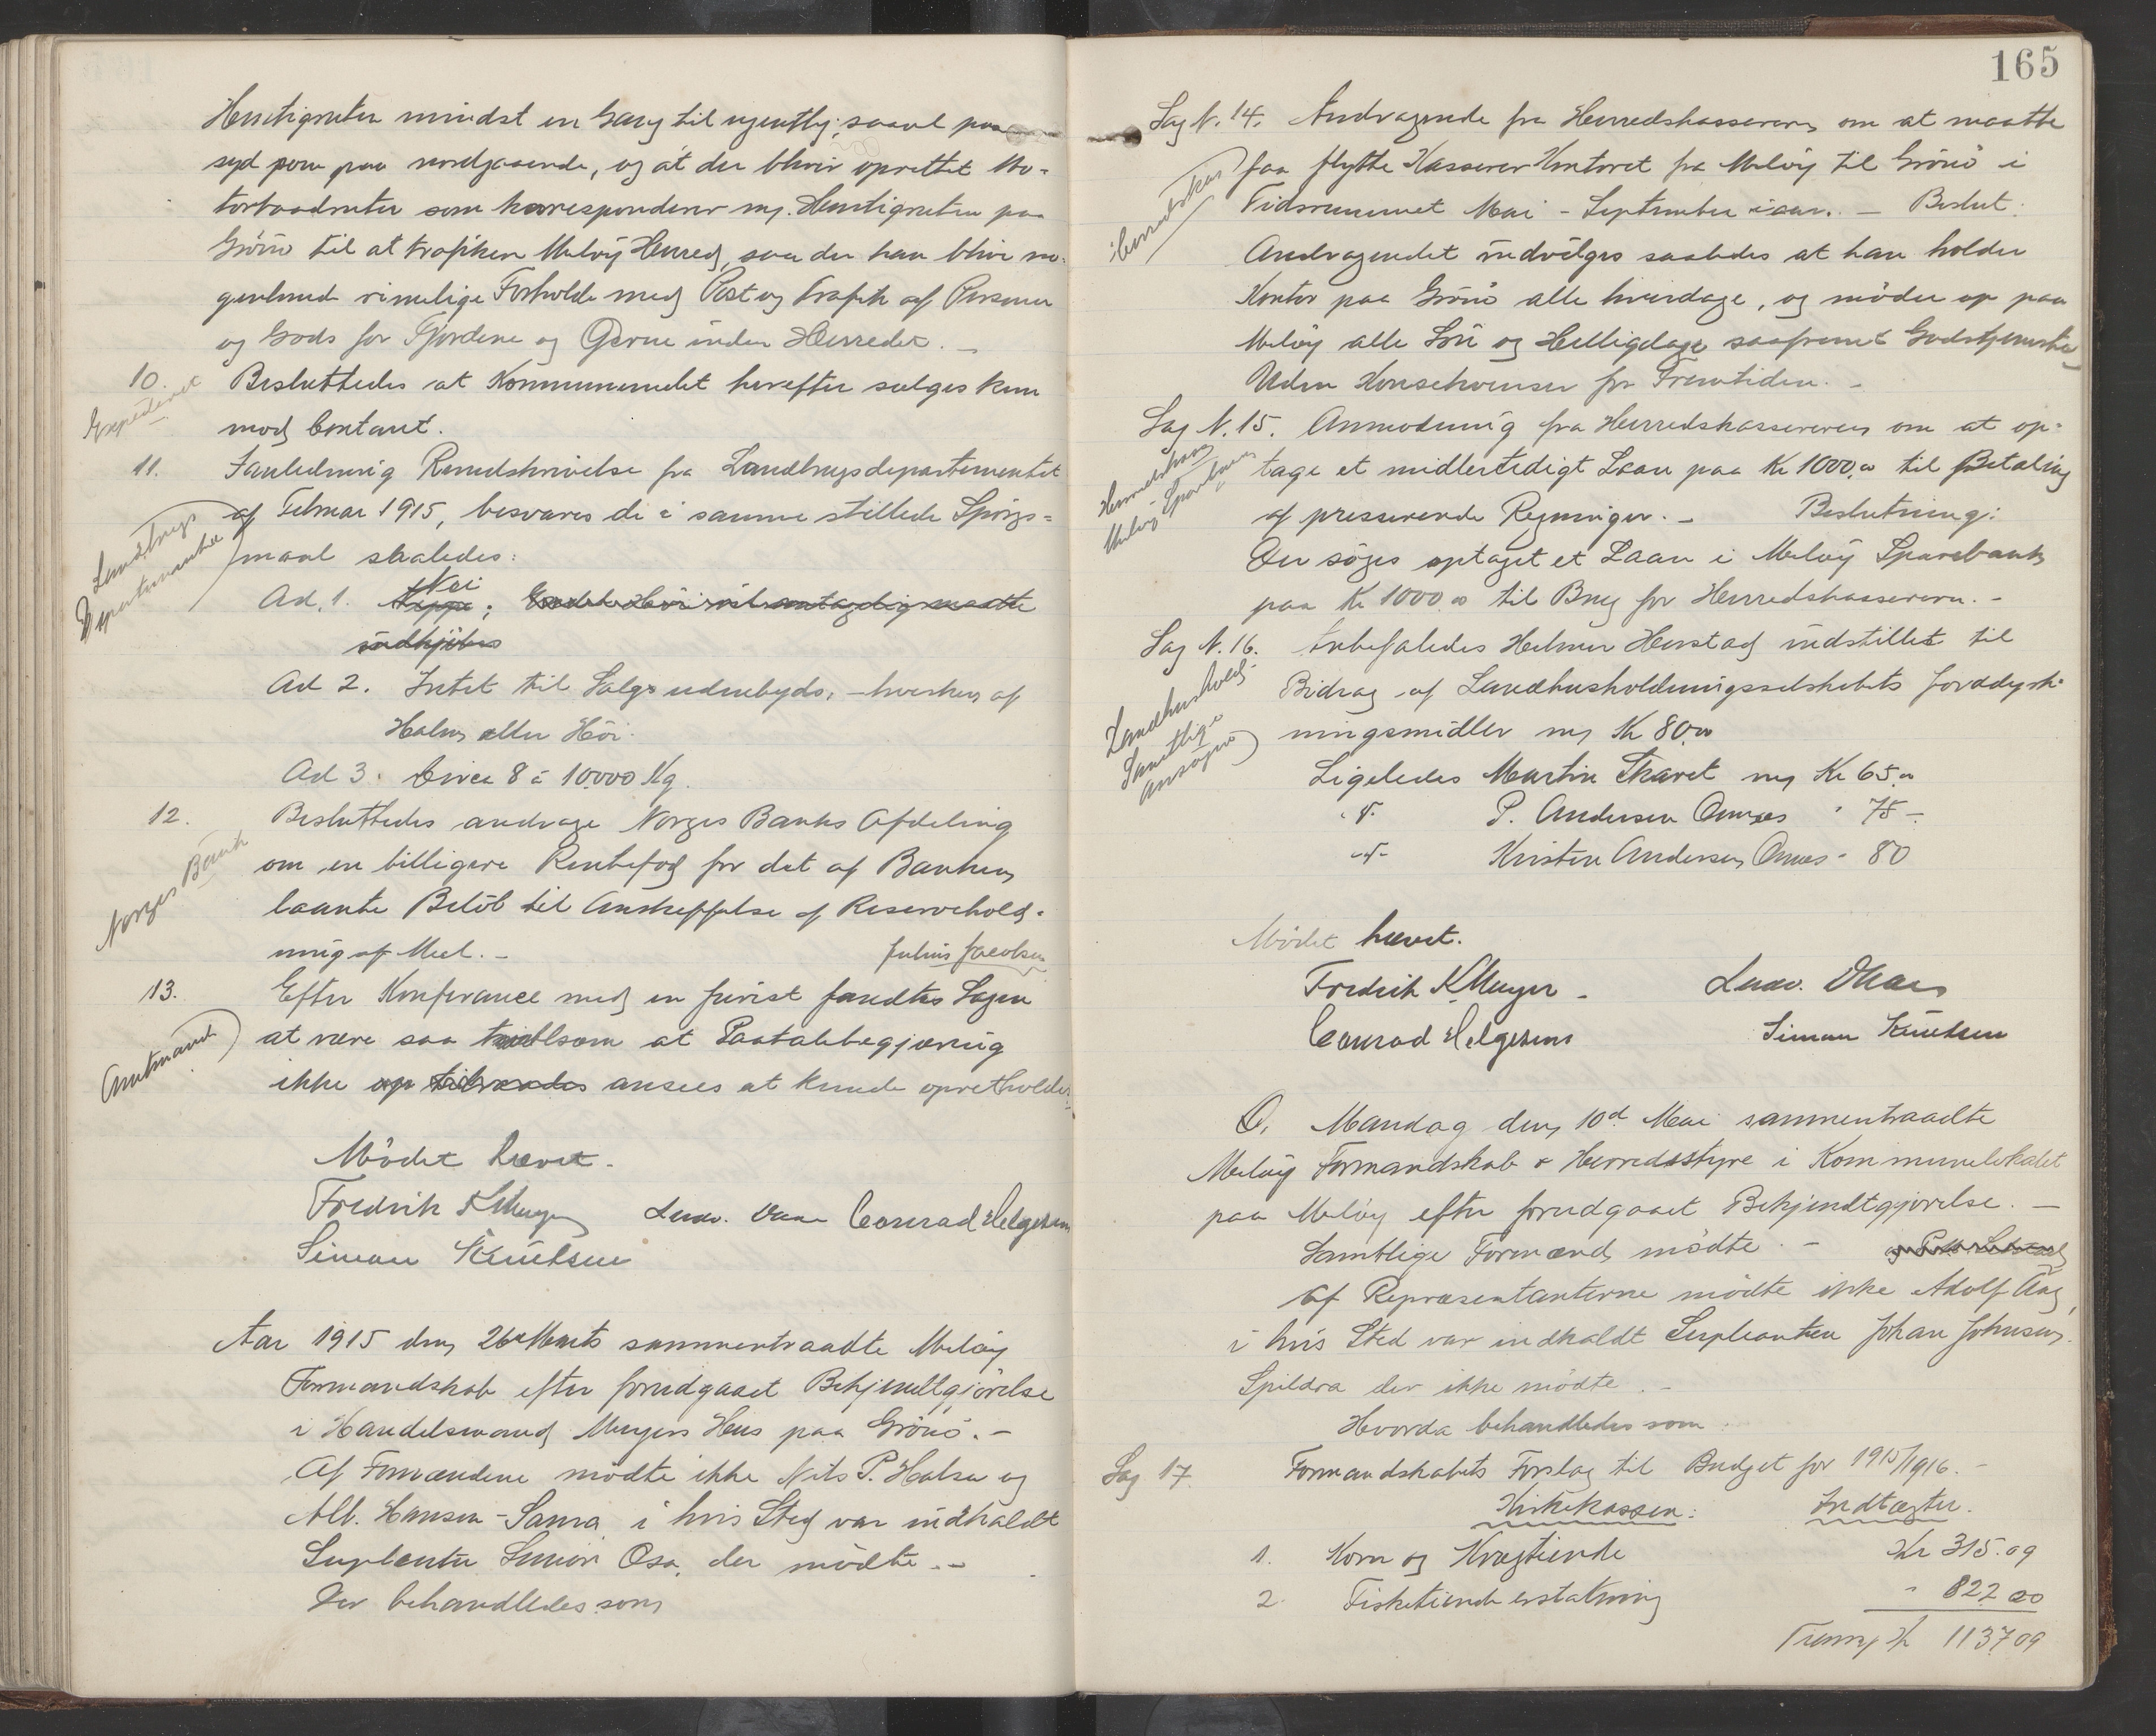 Hurtigruten mindst en Gang til ugentlig, saavel paa
syd som paa nordgaaende, og at der bliver oprettet Mo-
torbaadruter som korresponderer m. Hurtigruten paa
Grönö til at trafikere Melöy Herred, saa der kan blive no-
genlunde rimelige Forholde med Post og Trafik af Personer
og Gods for Fjordene og Öerne inden Herredet. -
10. Besluttedes at Kommunemelet herefter sælges kun
Expederet
mod Contant.
11. I anledning Rundskrivelse fra Landbrugsdepartementet
af Februar 1915, besvares de i samme stillede Spörgs-
Landbrugs
Departementet
maal saaledes:
Ad. 1. Nei
Neppe; Endel Höi vil antagelig maatte
indkjöbes
Ad 2. Intet til Salgs udenbyds, - hverken af
Halm eller Höi.
Ad 3. Circa 8 à 10000 Kg.
12. Besluttedes andrage Norges Banks Afdeling
om en billigere Rentefod for det af Banken
Norges Bank
laante Belöb til Anskaffelse af Reservehold-
ning af Meel. -
Julius Jacobsen
13. Efter Konferance med en Jurist fandtes Sagen
at være saa tvilsom at Paatalebegjæring
Amtmand
ikke op ansees at kunde opretholdes.
Mödet hævet.
Fredrik K Meyer Ludv. Conrad Helgesens
Simon Knutsen
Aar 1915 den 26de Marts sammentraadte Melöy
Formandskab efter forudgaaet Bekjendtgjörelse
i Handelsmand Meyers Hus paa Grönö. -
Af Formændene mödte ikke Nils P. Halsa og
Alb. Hansen - Sanna i hvis Sted var indkaldt
Suplenten Simon Osa, der mödte. -
Der behandledes som
165
Sag N. 14. Andragende fra Herredskassereren om at maatte
faa flytte Kasserer Kontoret fra Melöy til Grönö i
Herredskas
Tidsrummet Mai - September iaar. - Beslut:
Andragendet indvilges saaledes at han holder
Kontor paa Grönö alle hverdage, og möder op paa
Melöy alle Sön og Helligdage saafremt Gudstjeneste
Uden Konsekvenser for Fremtiden. -
Sag N. 15. Anmodning fra Herredskassereren om at op-
tage et midlertidigt Laan paa Kr 1000.00 til Betaling
Herredskas
Melöy Sparebank
af presserende Regninger. - Beslutning:
Der söges optaget et Laan i Melöy Sparebank
paa Kr 1000.00 til Brug for Herredskassereren. -
Sag N. 16. Anbefaledes Helmer Herstad indstillet til
Bidrag af Landhusholdningsselskabets jorddyrk-
Landhushold.
Samtlige
ansøgn
ningsmidler m. Kr 80.00
Ligeledes Martin Skaret m. Kr 65.00
P. Andersen Ørnes " 75 -
Kristen Andersen Ørnes " 80
Mödet hævet.
Fredrik K Meyer - Ludv.
Conrad Helgesens Simon Knutsen
Mandag den 10d Mai sammentraadte
Melöy Formandskab & Herredsstyre i Kommunelokalet
paa Melöy efter forudgaaet Bekjendtgjörelse. -
Samtlige Formænd mödte. -
Af Repræsentanterne mödte ikke Adolf Aag
i hvis Sted var indkaldt Suplenten Johan Johnsen
Spildra der ikke mödte. -
Hvorda behandledes som:
Sag 17. Formandskabets Forslag til Budget for 1915/1916. -
Kirkekassen: Indtægter.
1. Korn og Kvægtiende Kr 315.09
2. Fisketiende erstatning " 822 00
Kr 1137 09